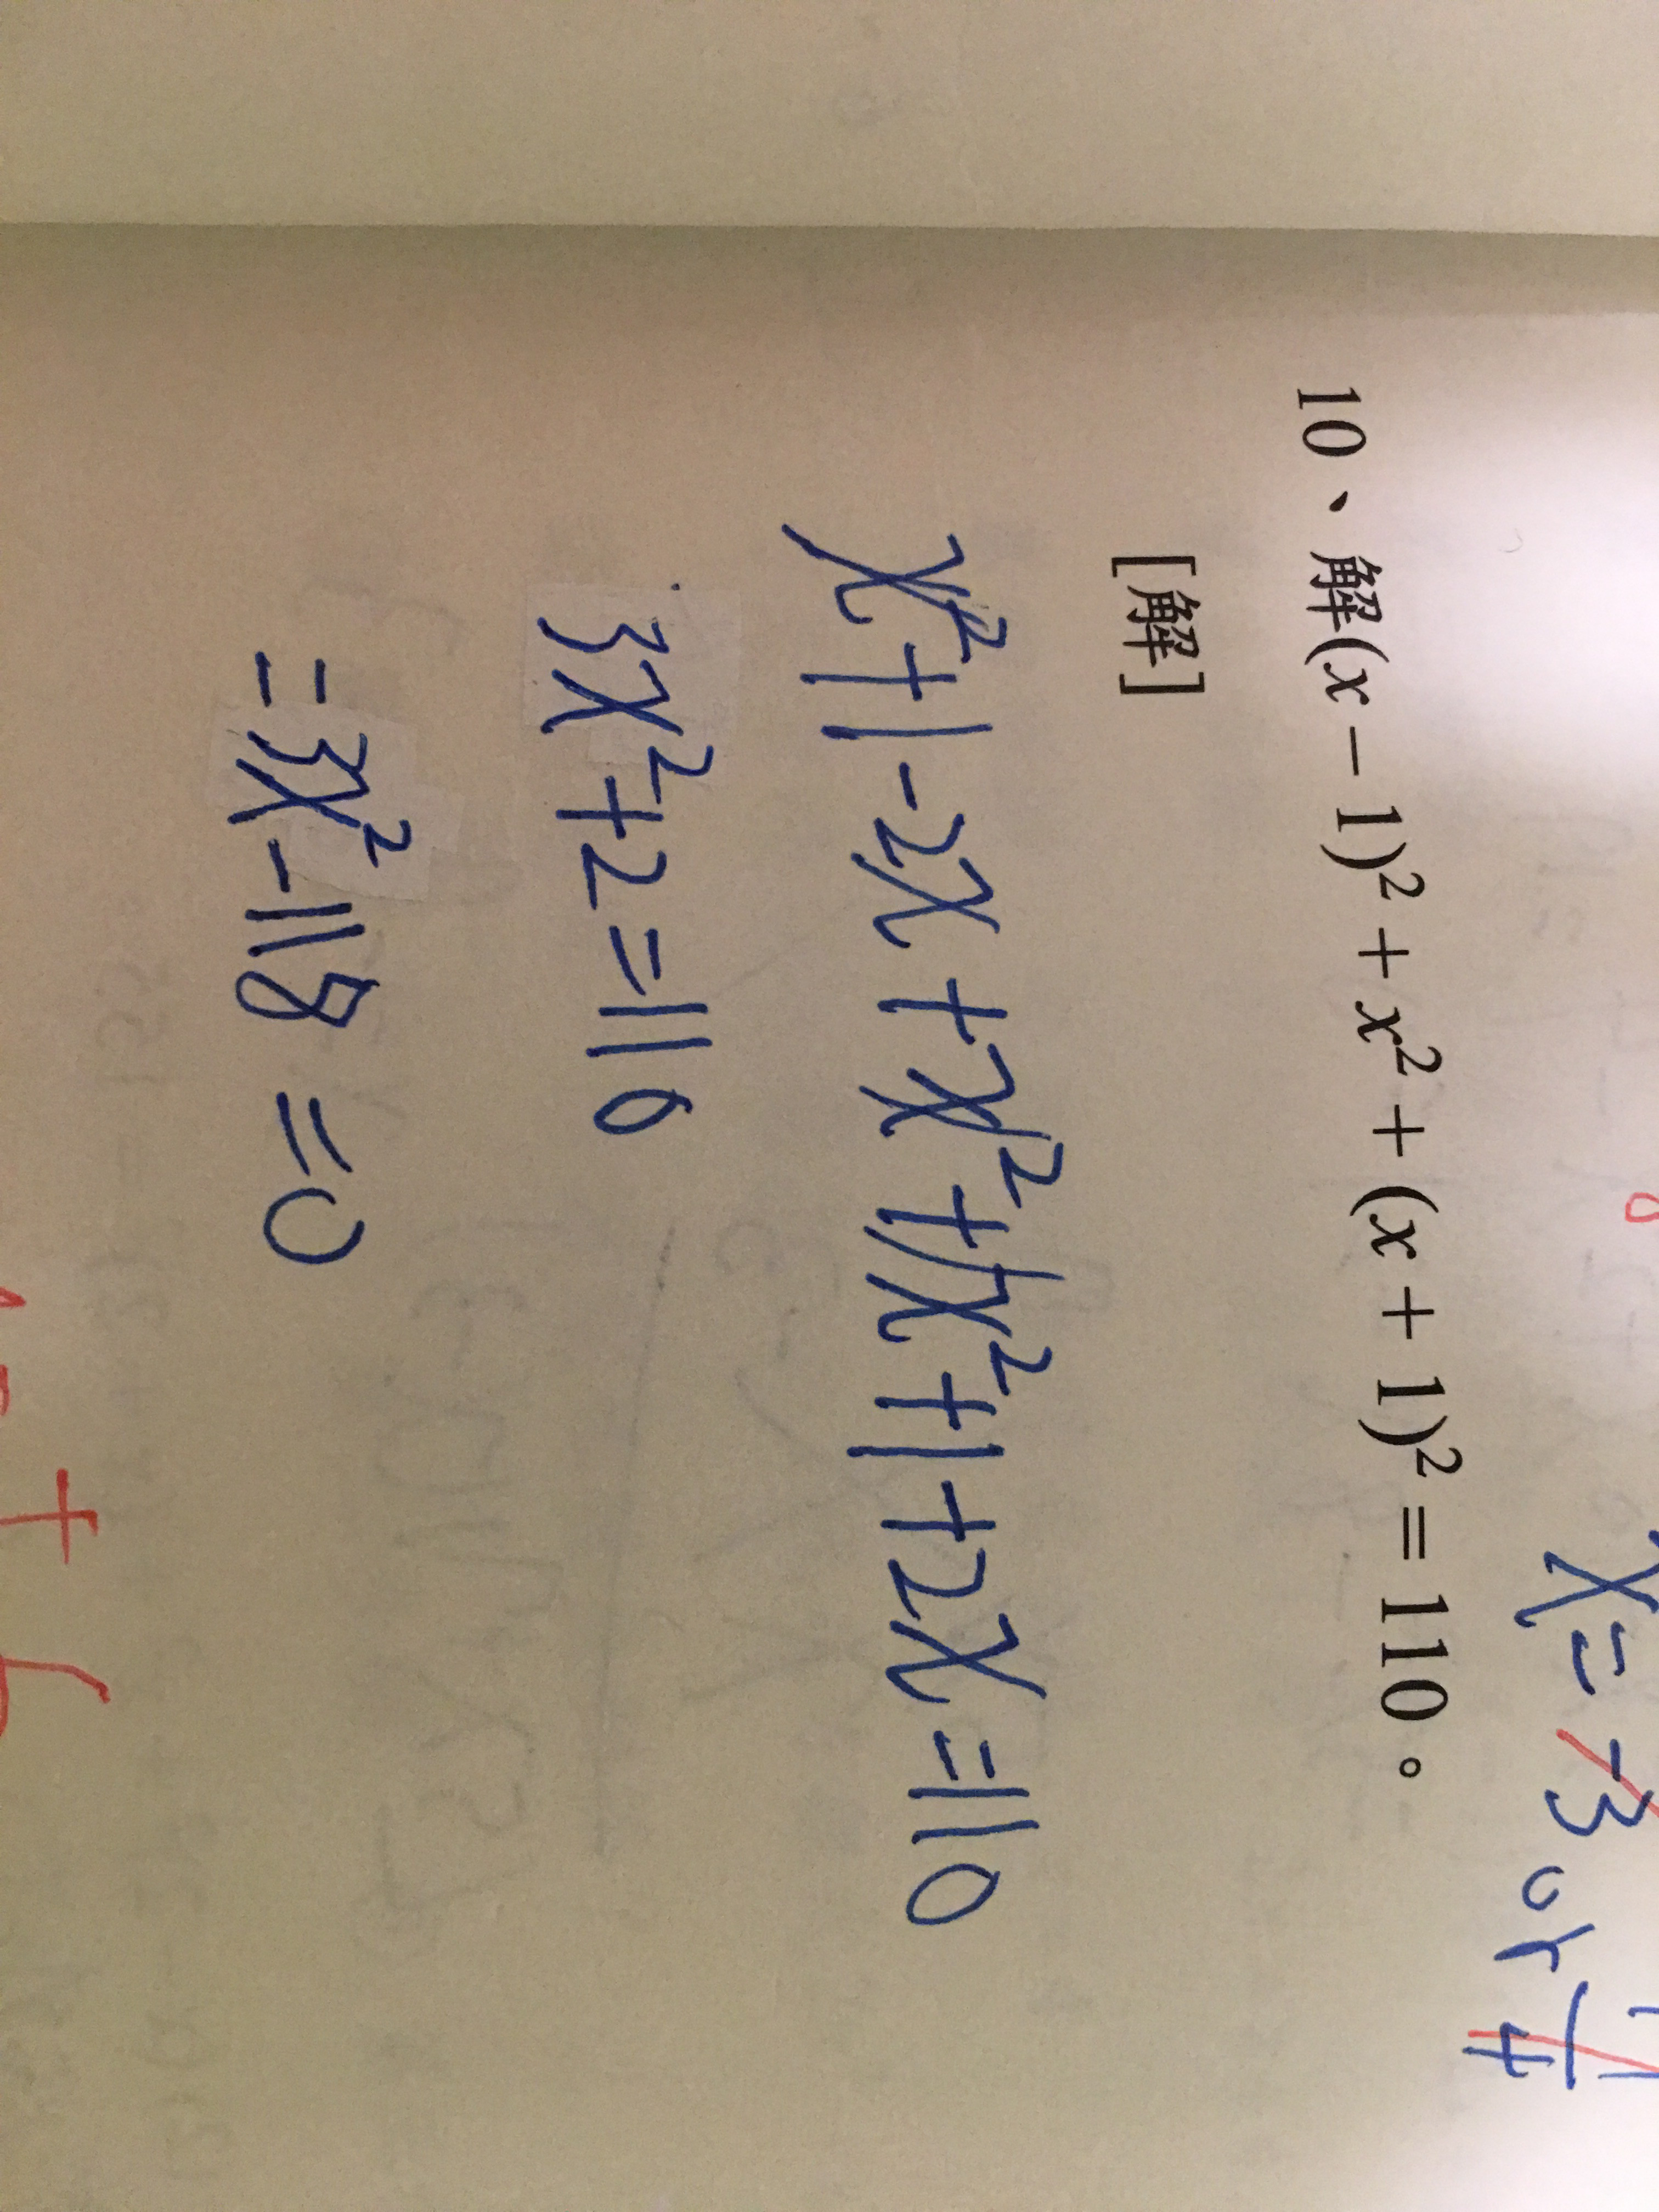 x = -3 or 4
10、解(x-1)²+x²+(x+1)²=110。
[解]
x²+1-2x+x²+x²+1+2x=110
3x²+2=110
=3x²-118=0